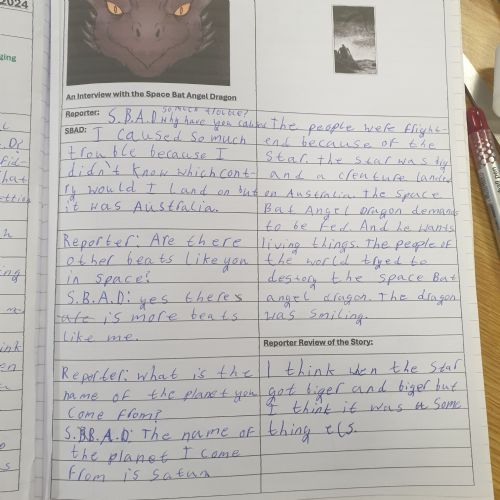 2024
An Interview with the Space Bat Angel Dragon
Reporter: S.B.A.D. so much trouble?
why have you caused
SBAD: I caused so much
trouble because I
didn't know which cont-
ry would I land on but
it was Australia.
Reporter: Are there
other beats like you
in space?
S.B.A.D: yes theres
ate is more beats
like me.
Reporter: what is the
name of the planet you
come from?
S.B.A.D: The name of
the planet I come
from is Satun
The people were fright-
end because of the
Star. the star was big
and a creature landed
on Australia. The Space
Bat Angel Dragon demands
to be fed. And he wants
living things. The people of
the world tryed to
destory the space Bat
angel dragon. The dragon
was smiling.
Reporter Review of the Story:
I think wen the star
got biger and biger but
I think it was a some
thing els.